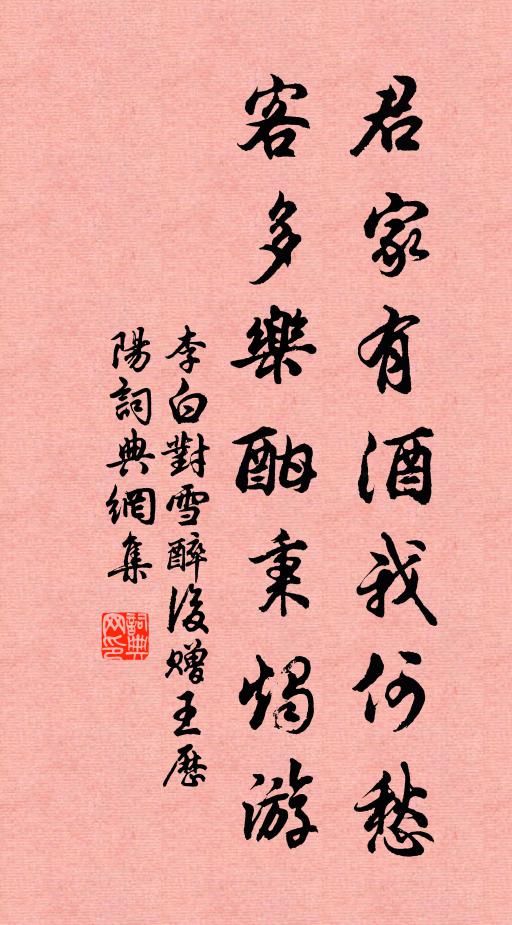 君家有酒我何愁
客多樂酣秉燭游
李白對雪醉後赠王歷
陽詞典網集
詞典
网印